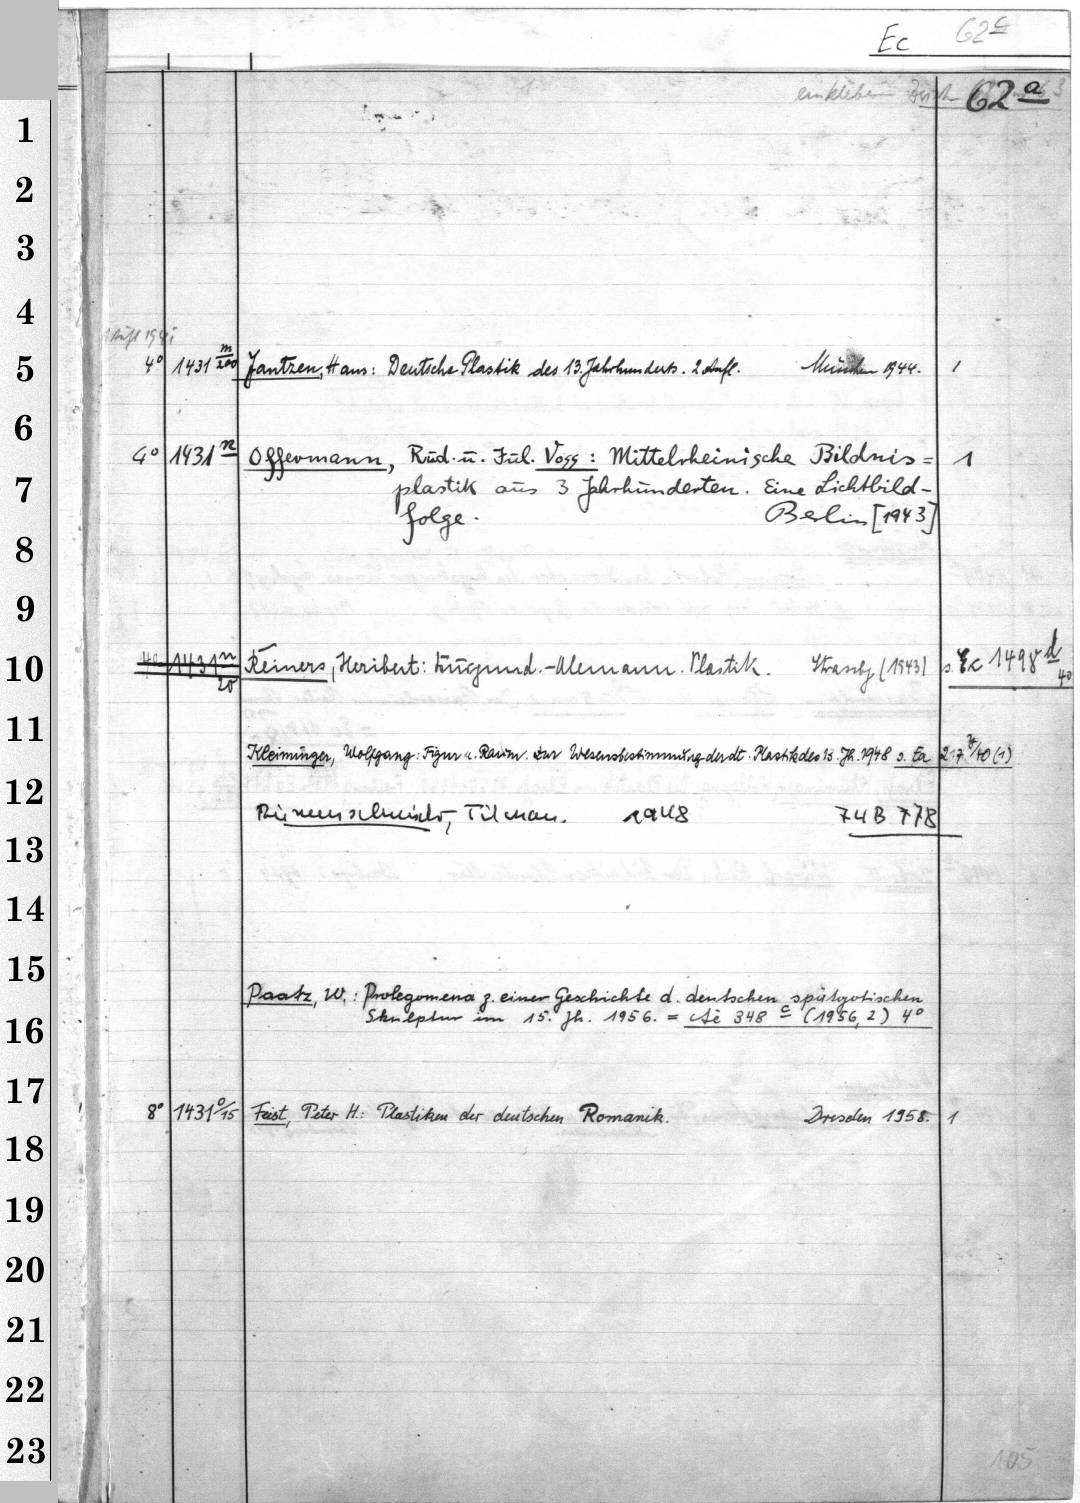 Ec 62 c
einkleben 62 a
1
2
3
4
5 4° 1431 m/200 Jantzen, Hans: Deutsche Plastik des 13. Jahrhunderts. 2. Aufl. München 1944. 1
6
4° 1431 n Offermann, Rud. u. Jul. Vogg: Mittelrheinische Bildnis= 1
7 plastik aus 3 Jahrhunderten. Eine Lichtbild-
folge. Berlin [1943]
8
9
10 4° 1431 n/20 Reiners, Heribert: Burgund.-Alemann. Plastik. Strassb (1943) s. Ec 1498 d 4°
11
Kleiminger, Wolfgang: Figur u. Raum. Zur Wesensbestimmung der dt. Plastik des 13. Jh. 1948 s. Ea 217 /40 (1)
12
Riemenschneider, Tilman. 1948 74 B 778
13
14
15
Paatz, W.: Prolegomena z. einer Geschichte d. deutschen spätgotischen
16 Skulptur im 15. Jh. 1956. = Ae 348 c (1956, 2) 4°
17
8° 1431 o/15 Feist, Peter H.: Plastiken der deutschen Romanik. Dresden 1958. 1
18
19
20
21
22
23
105